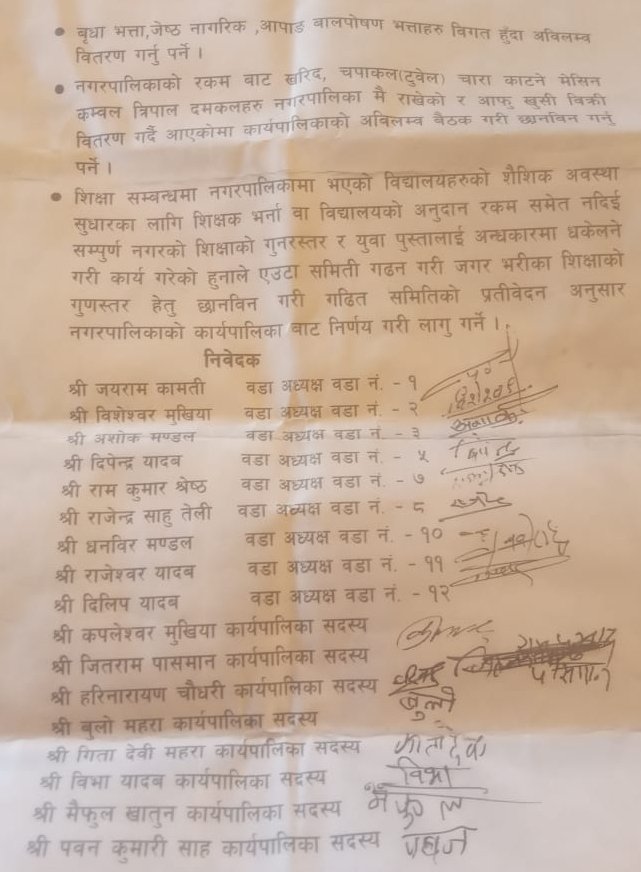 • बृधा भत्ता,जेष्ठ नागरिक ,आपाङ बालपोषण भत्ताहरु विगत हुँदा अविलम्व
वितरण गर्नु पर्ने ।
• नगरपालिकाको रकम बाट खरिद, चपाकल(टुवेल) चारा काटने मेसिन
कम्वल त्रिपाल दमकलहरु नगरपालिका मै राखेको र आफु खुसी विक्री
वितरण गर्दै आएकोमा कार्यपालिकाको अविलम्व बैठक गरी छानविन गर्नु
पर्ने ।
• शिक्षा सम्बन्धमा नगरपालिकामा भएको विद्यालयहरुको शैशिक अवस्था
सुधारका लागि शिक्षक भर्ना वा विद्यालयको अनुदान रकम समेत नदिई
सम्पुर्ण नगरको शिक्षाको गुनरस्तर र युवा पुस्तालाई अन्धकारमा धकेलने
गरी कार्य गरेको हुनाले एउटा समिती गढन गरी जगर भरीका शिक्षाको
गुणस्तर हेतु छानविन गरी गढित समितिको प्रतीवेदन अनुसार
नगरपालिकाको कार्यपालिका बाट निर्णय गरी लागु गर्ने ।
निवेदक
श्री जयराम कामती वडा अध्यक्ष वडा नं. - १
श्री विशेश्वर मुखिया वडा अध्यक्ष वडा नं. - २ विशेश्वर
श्री अशोक मण्डल वडा अध्यक्ष वडा नं. - ३
श्री दिपेन्द्र यादब वडा अध्यक्ष वडा नं. - ५
श्री राम कुमार श्रेष्ठ वडा अध्यक्ष वडा नं. - ७
श्री राजेन्द्र साहु तेली वडा अध्यक्ष वडा नं. - ८
श्री धनविर मण्डल वडा अध्यक्ष वडा नं. - १०
श्री राजेश्वर यादब वडा अध्यक्ष वडा नं. - ११
श्री दिलिप यादब वडा अध्यक्ष वडा नं. - १२
श्री कपलेश्वर मुखिया कार्यपालिका सदस्य
श्री जितराम पासमान कार्यपालिका सदस्य
श्री हरिनारायण चौधरी कार्यपालिका सदस्य
श्री बुलो महरा कार्यपालिका सदस्य बुलो
श्री गिता देवी महरा कार्यपालिका सदस्य
श्री विभा यादब कार्यपालिका सदस्य विभा
श्री मैफुल खातुन कार्यपालिका सदस्य
श्री पवन कुमारी साह कार्यपालिका सदस्य